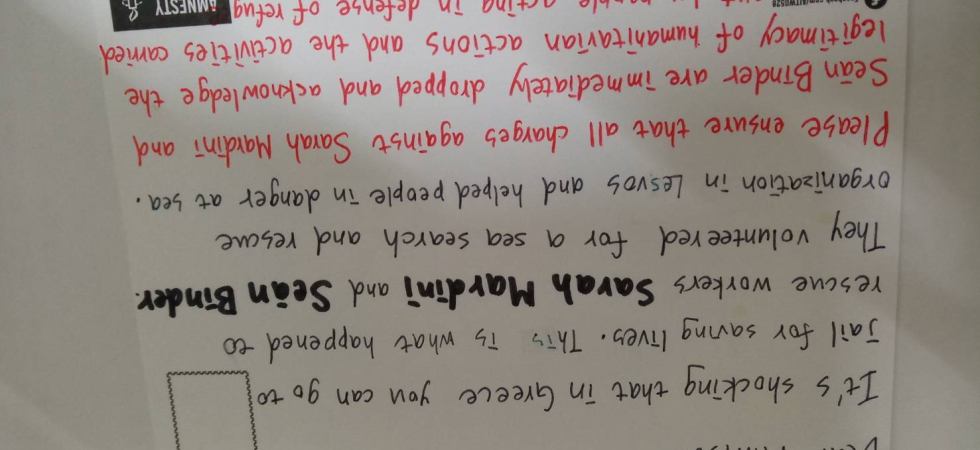 It's shocking that in Greece you can go to
jail for saving lives. This is what happened to
rescue workers Sarah Mardini and Seán Binder.
They volunteered for a sea search and rescue
organization in Lesvos and helped people in danger at sea.
Please ensure that all charges against Sarah Mardini and
Seán Binder are immediately dropped and acknowledge the
legitimacy of humanitarian actions and the activities carried
acting in defense of refug
AMNESTY